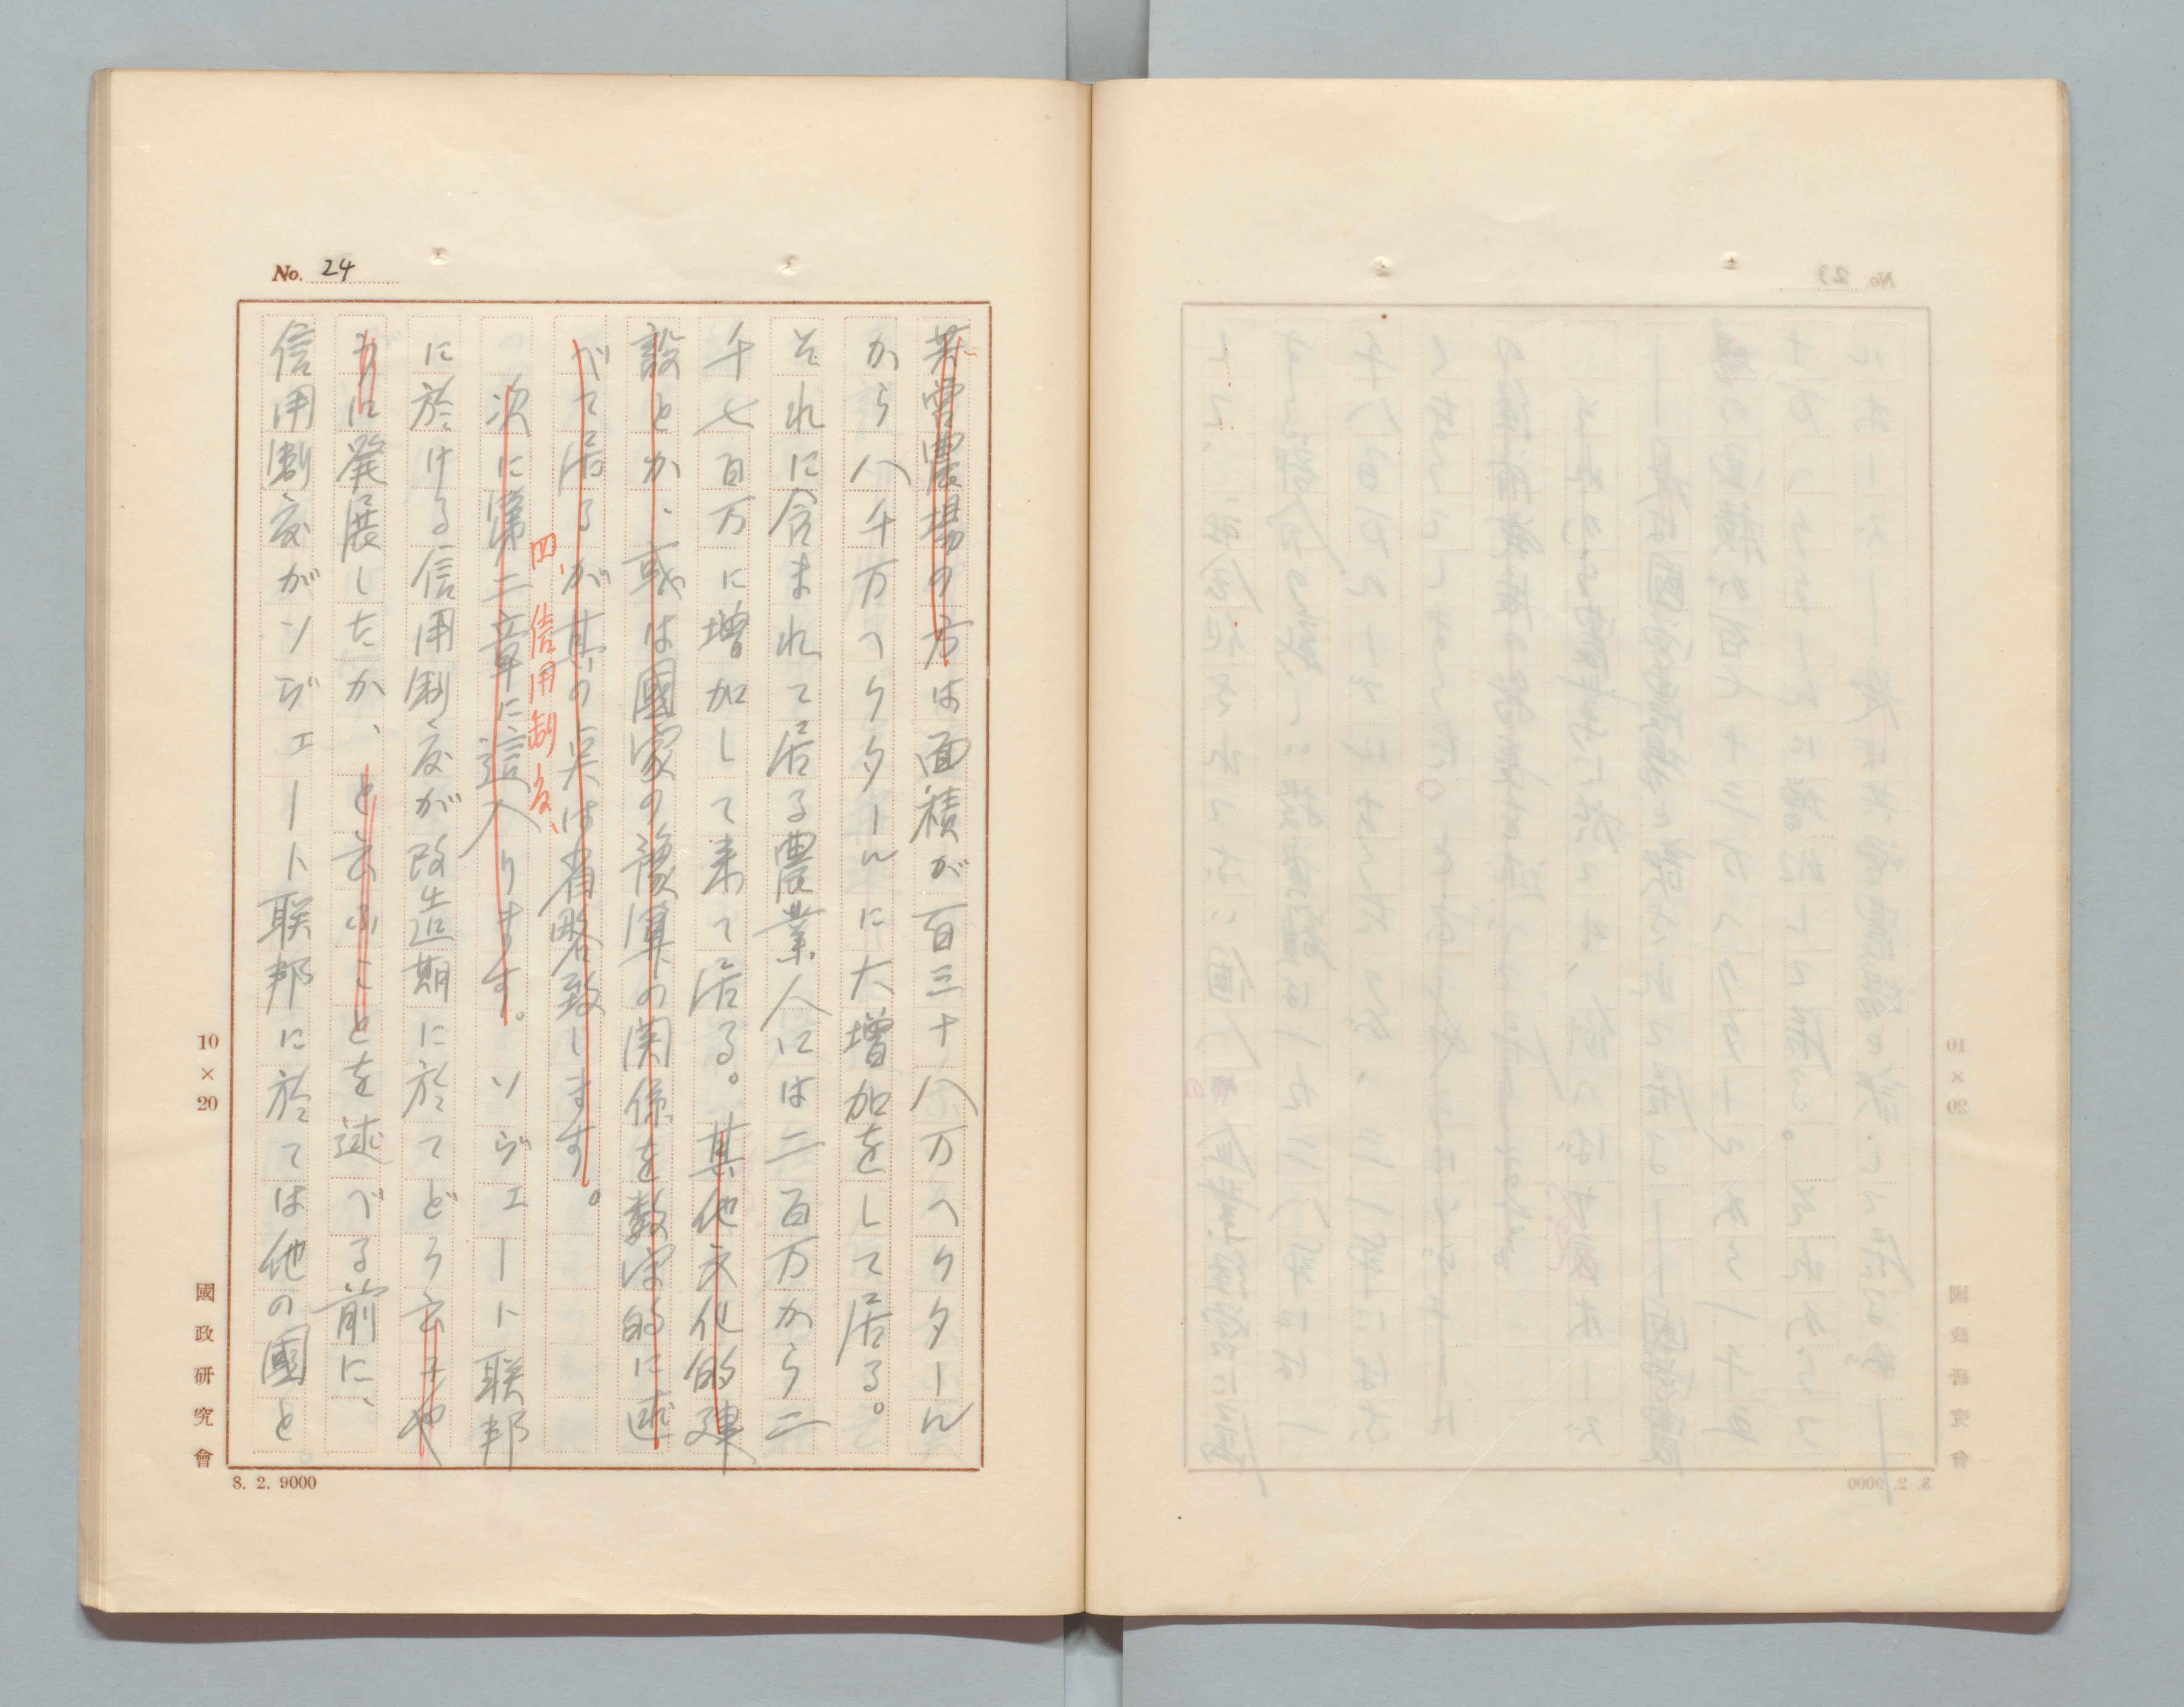 No. 24
共営農場の方は面積が百三十八万ヘクタール
から八千万ヘクタールに大増加をして居る。
それに含まれて居る農業人には二百万から二
千七百万に増加して来て居る。其他文化的建
設とか、或は國家の豫算の関係を数字的に述
べて居るが其の点は省略致します。
四、信用制度、
次に第二章に這入ります。ソヴェート聯邦
に於ける信用制度が改造期に於てどう云ふや
うに発展したか、と云ふことを述べる前に、
信用制度がソヴェート聯邦に於ては他の國と
10×20
國政研究會
8. 2. 9000